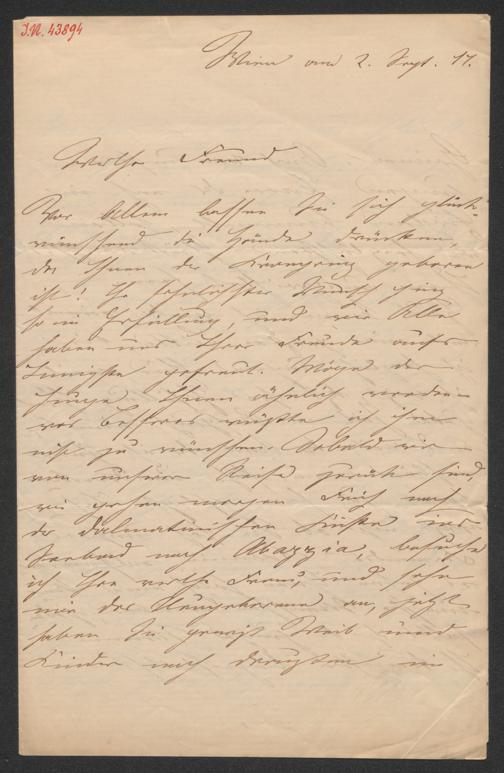 J.N. 43894
Wien am 2. Sept. 17.
Werther Freund
Vor Allem lassen Sie sich glück-
wünschend die Hände drücken,
da Ihnen der Kronprinz geboren
ist! Ihr sehnlichster Wunsch ging
so in Erfüllung, und wir Alle
haben uns Ihrer Freude aufs
Innigste gefreut. Möge der
Junge Ihnen ähnlich werden
was besseres wüßte ich ihm
nicht zu wünschen. Sobald wir
von unserer Reise zurück sind,
wir gehen morgen Früh nach
der dalmatinischen Küste ins
Seebad nach Abazzia, besuche
ich Ihre werthe Frau, und sehe
mir das Neugeborene an, jetzt
haben Sie gewiß Weib und
Kinder noch draußen in